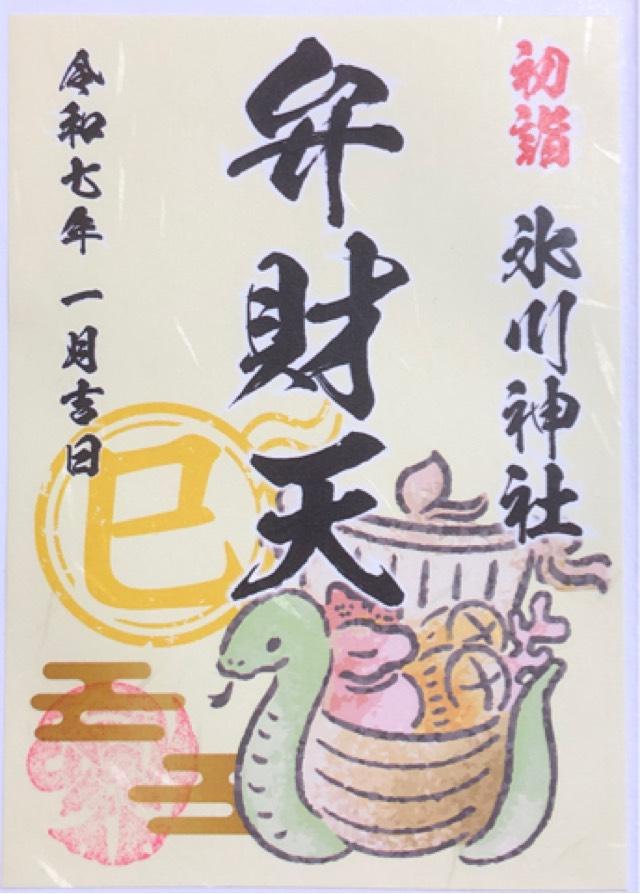 初詣
氷川神社
弁財天
令和七年 一月吉日
巳